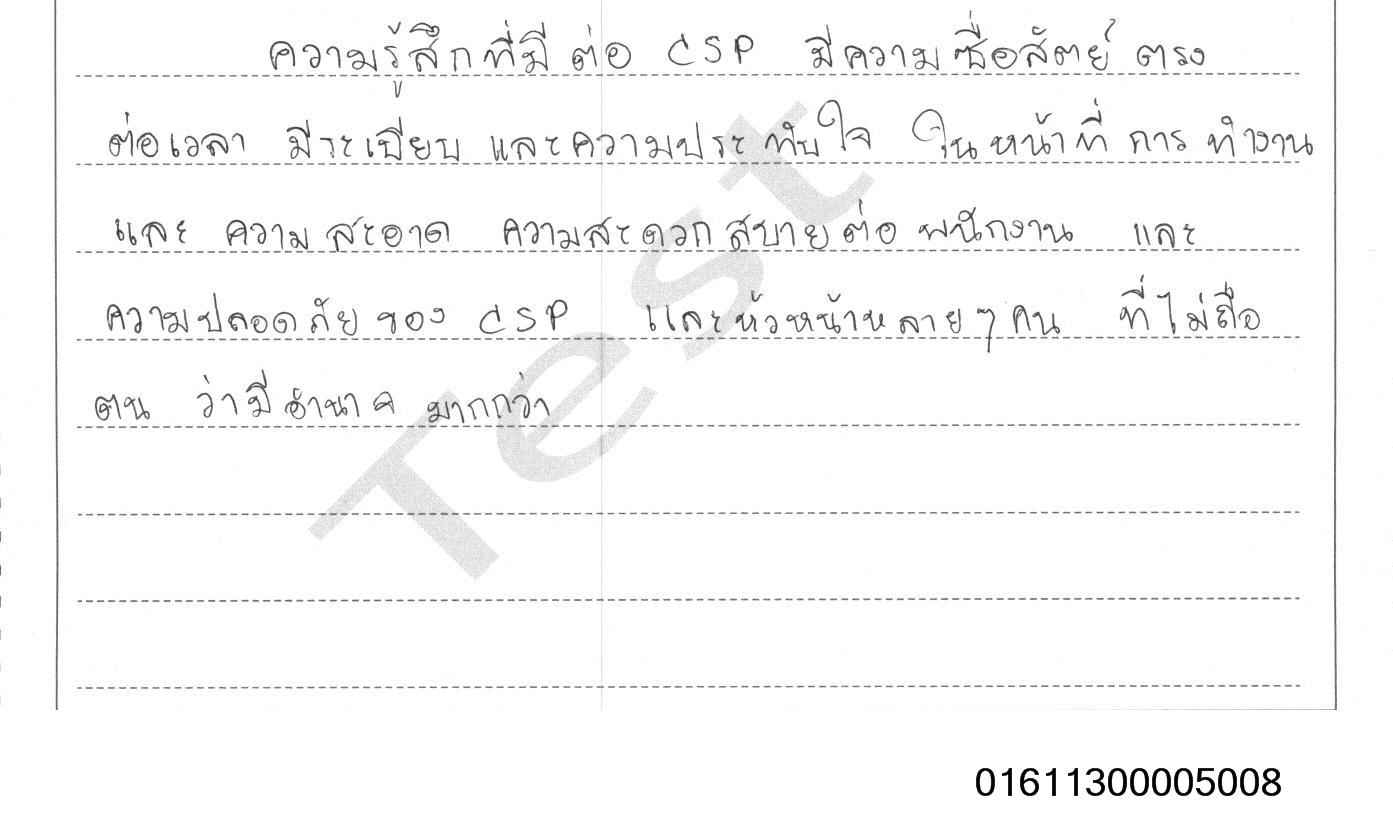 ความรู้สึกที่มีต่อ CSP มีความซื่อสัตย์ ตรง
ต่อเวลา มีระเบียบ และความประทับใจ ในหน้าที่ การ ทำงาน
และ ความสะอาด ความสะดวกสบายต่อ พนักงาน และ
ความปลอดภัย ของ CSP และหัวหน้าหลายๆคน ที่ไม่ถือ
ตน ว่ามีอำนาจ มากกว่า
Test
01611300005008